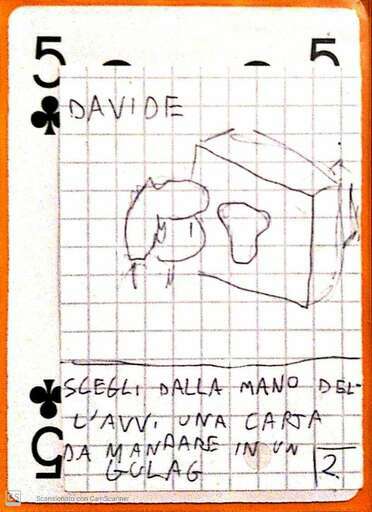 5 5
DAVIDE
SCEGLI DALLA MANO DEL-
L'AVV. UNA CARTA
DA MANDARE IN UN
GULAG
2
5
CS Scansionato con CamScanner